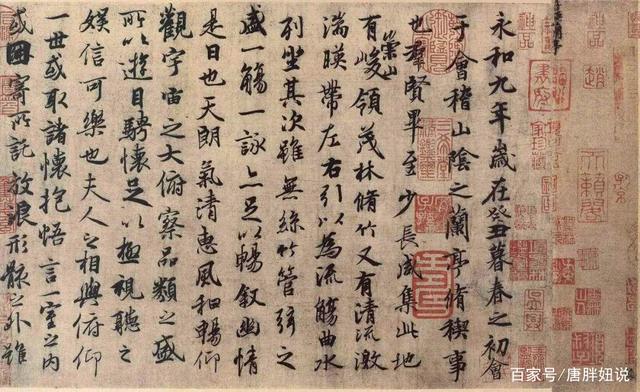 永和九年歲在癸丑暮春之初會
于會稽山陰之蘭亭脩稧事
也羣賢畢至少長咸集此地
有崇山峻領茂林脩竹又有清流激
湍暎帶左右引以為流觴曲水
列坐其次雖無絲竹管弦之
盛一觴一詠亦足以暢敘幽情
是日也天朗氣清惠風和暢仰
觀宇宙之大俯察品類之盛
所以遊目騁懷足以極視聽之
娛信可樂也夫人之相與俯仰
一世或取諸懷抱悟言一室之內
或因寄所託放浪形骸之外雖
百家号/唐胖妞说